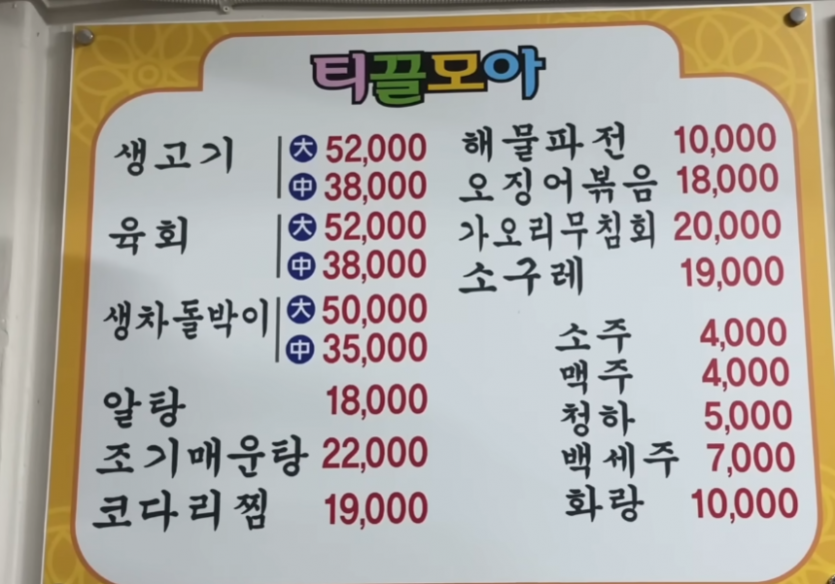 티끌모아
생고기 大 52,000
中 38,000
육회 大 52,000
中 38,000
생차돌박이 大 50,000
中 35,000
알탕 18,000
조기매운탕 22,000
코다리찜 19,000
해물파전 10,000
오징어볶음 18,000
가오리무침회 20,000
소구레 19,000
소주 4,000
맥주 4,000
청하 5,000
백세주 7,000
화랑 10,000